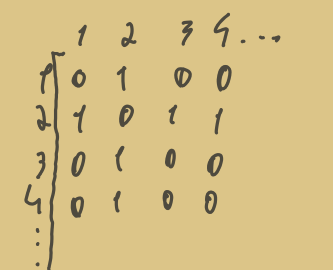 1 2 3 4 . . . .
1 0 1 0 0
2 1 0 1 1
3 0 1 0 0
4 0 1 0 0
⋮